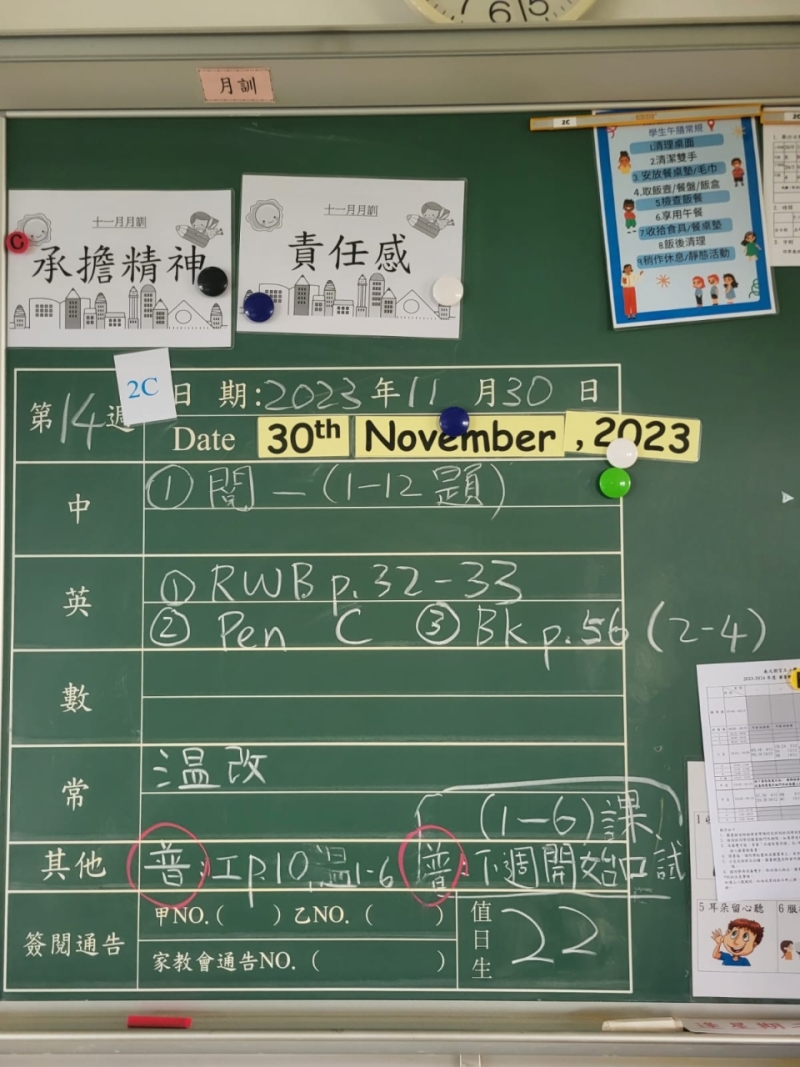 6 5
月訓
2C
學生午膳常規
1清理桌面
2.清潔雙手
3.安放餐桌墊/毛巾
4.取飯壺/餐盤/飯盒
5檢查飯餐
6.享用午餐
7收拾食具/餐桌墊
8.飯後清理
9稍作休息/靜態活動
C
十一月月訓
承擔精神
十一月月訓
責任感
2C
第14週
日 期:2023年11月30日
Date 30th November , 2023
中
① 閱一(1-12題)
英
① RWB p.32-33
② Pen C ③ BK p.56 (2-4)
數
常
溫改
(1-6)課
其他
普:工p.10 溫1-6 普:下週開始口試
簽閱通告
甲NO.( ) 乙NO.( )
家教會通告NO.( )
值日生
22
5 耳朵留心聽